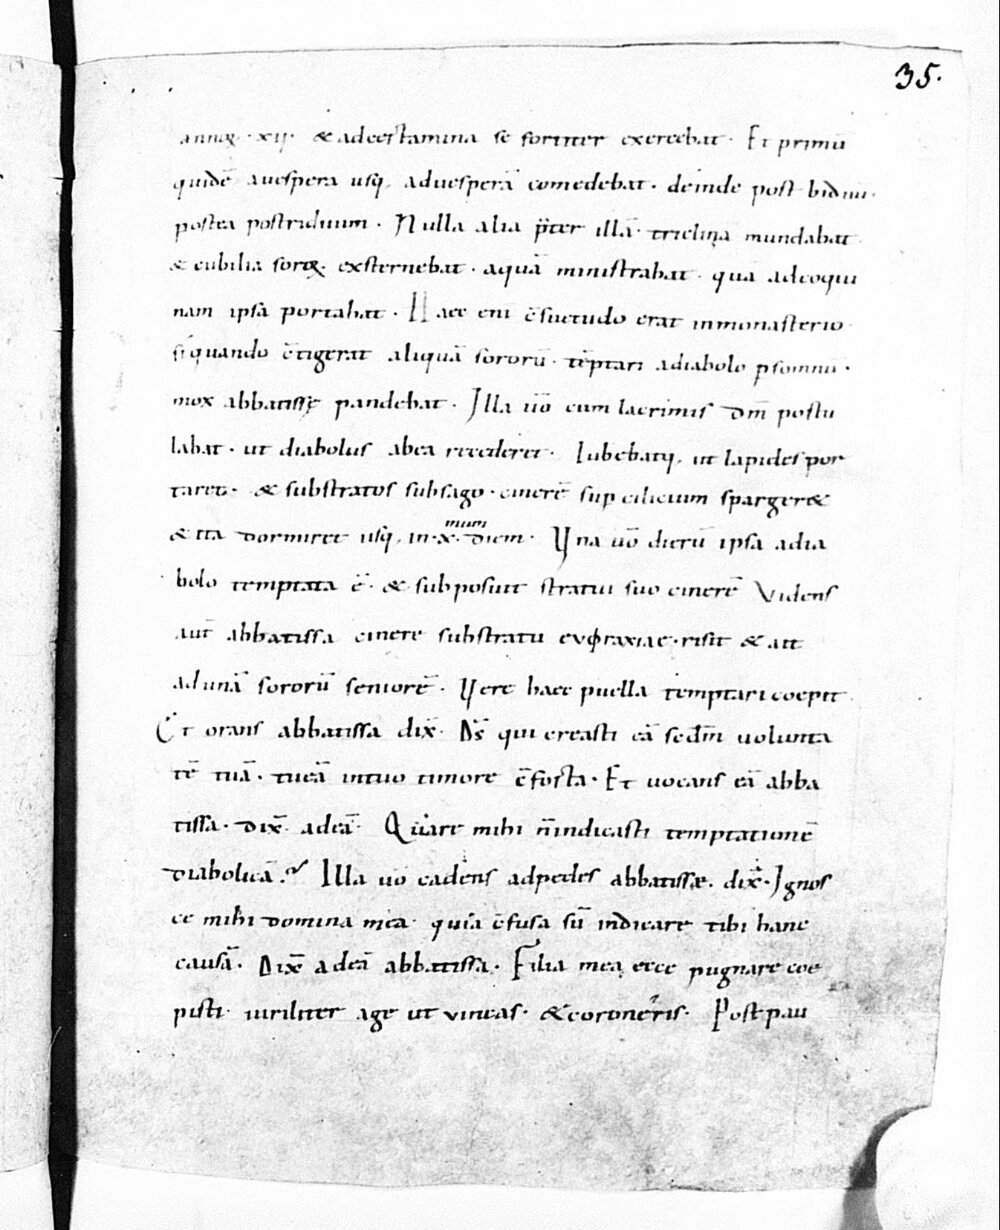 35.
annoꝝ · xij · & adcertamina se fortiter exercebat · Et primū
quidē auespera usq; aduesperā comedebat · deinde post biduū ·
postea postriduum · Nulla alia p̄ter illā · triclina mundabat
& cubilia soroꝝ exsternebat · aquā ministrabat · quā adcoqui
nam ipsa portabat · Haec eni c̄suetudo erat inmonasterio
si quando c̄tigerat aliquā sororū · tēptari adiabolo ꝑsomnū ·
mox abbatissę pandebat · Illa uō cum lacrimis dm̄ postu
labat · ut diabolus abea recederet · Iubebatq; ut lapides por
taret · & substratos subsago · cinerē sup cilicium sparger&
& ita dormiret usq; in · x · mum diem · Una uō dierū ipsa adia
bolo temptata ē · & subposuit stratui suo cinerē Videns
aut̄ abbatissa cinere substratu euphraxiae · risit & ait
ad unā sororū seniorē · Vere haec puella temptari coepit
Et orans abbatissa dix̄ · Ds̄ qui creasti eā scdm̄ uolunta
tē tuā · tu eā intuo timore c̄forta · Et uocans eā abba
tissa · dix̄ adeā · Quare mihi n̄ indicasti temptationē
diabolicā · Illa uō cadens adpedes abbatissæ · dix̄ · Ignos
ce mihi domina mea · quia c̄fusa sū indicare tibi hanc
causā · Dix̄ adeā abbatissa · Filia mea ecce pugnare coe
pisti · uiriliter age ut vincas · & coroneris · Post pau